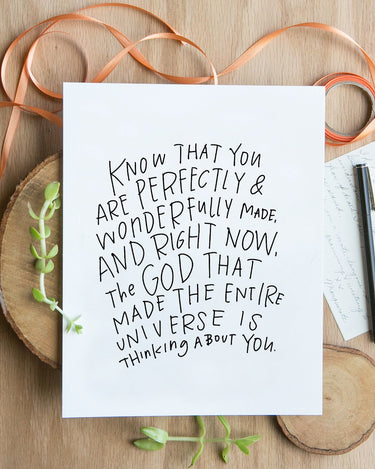 KNOW THAT YOU
ARE PERFECTLY &
WONDERFULLY MADE,
AND RIGHT NOW,
The GOD THAT
MADE THE ENTIRE
UNIVERSE IS
THINKING ABOUT YOU.